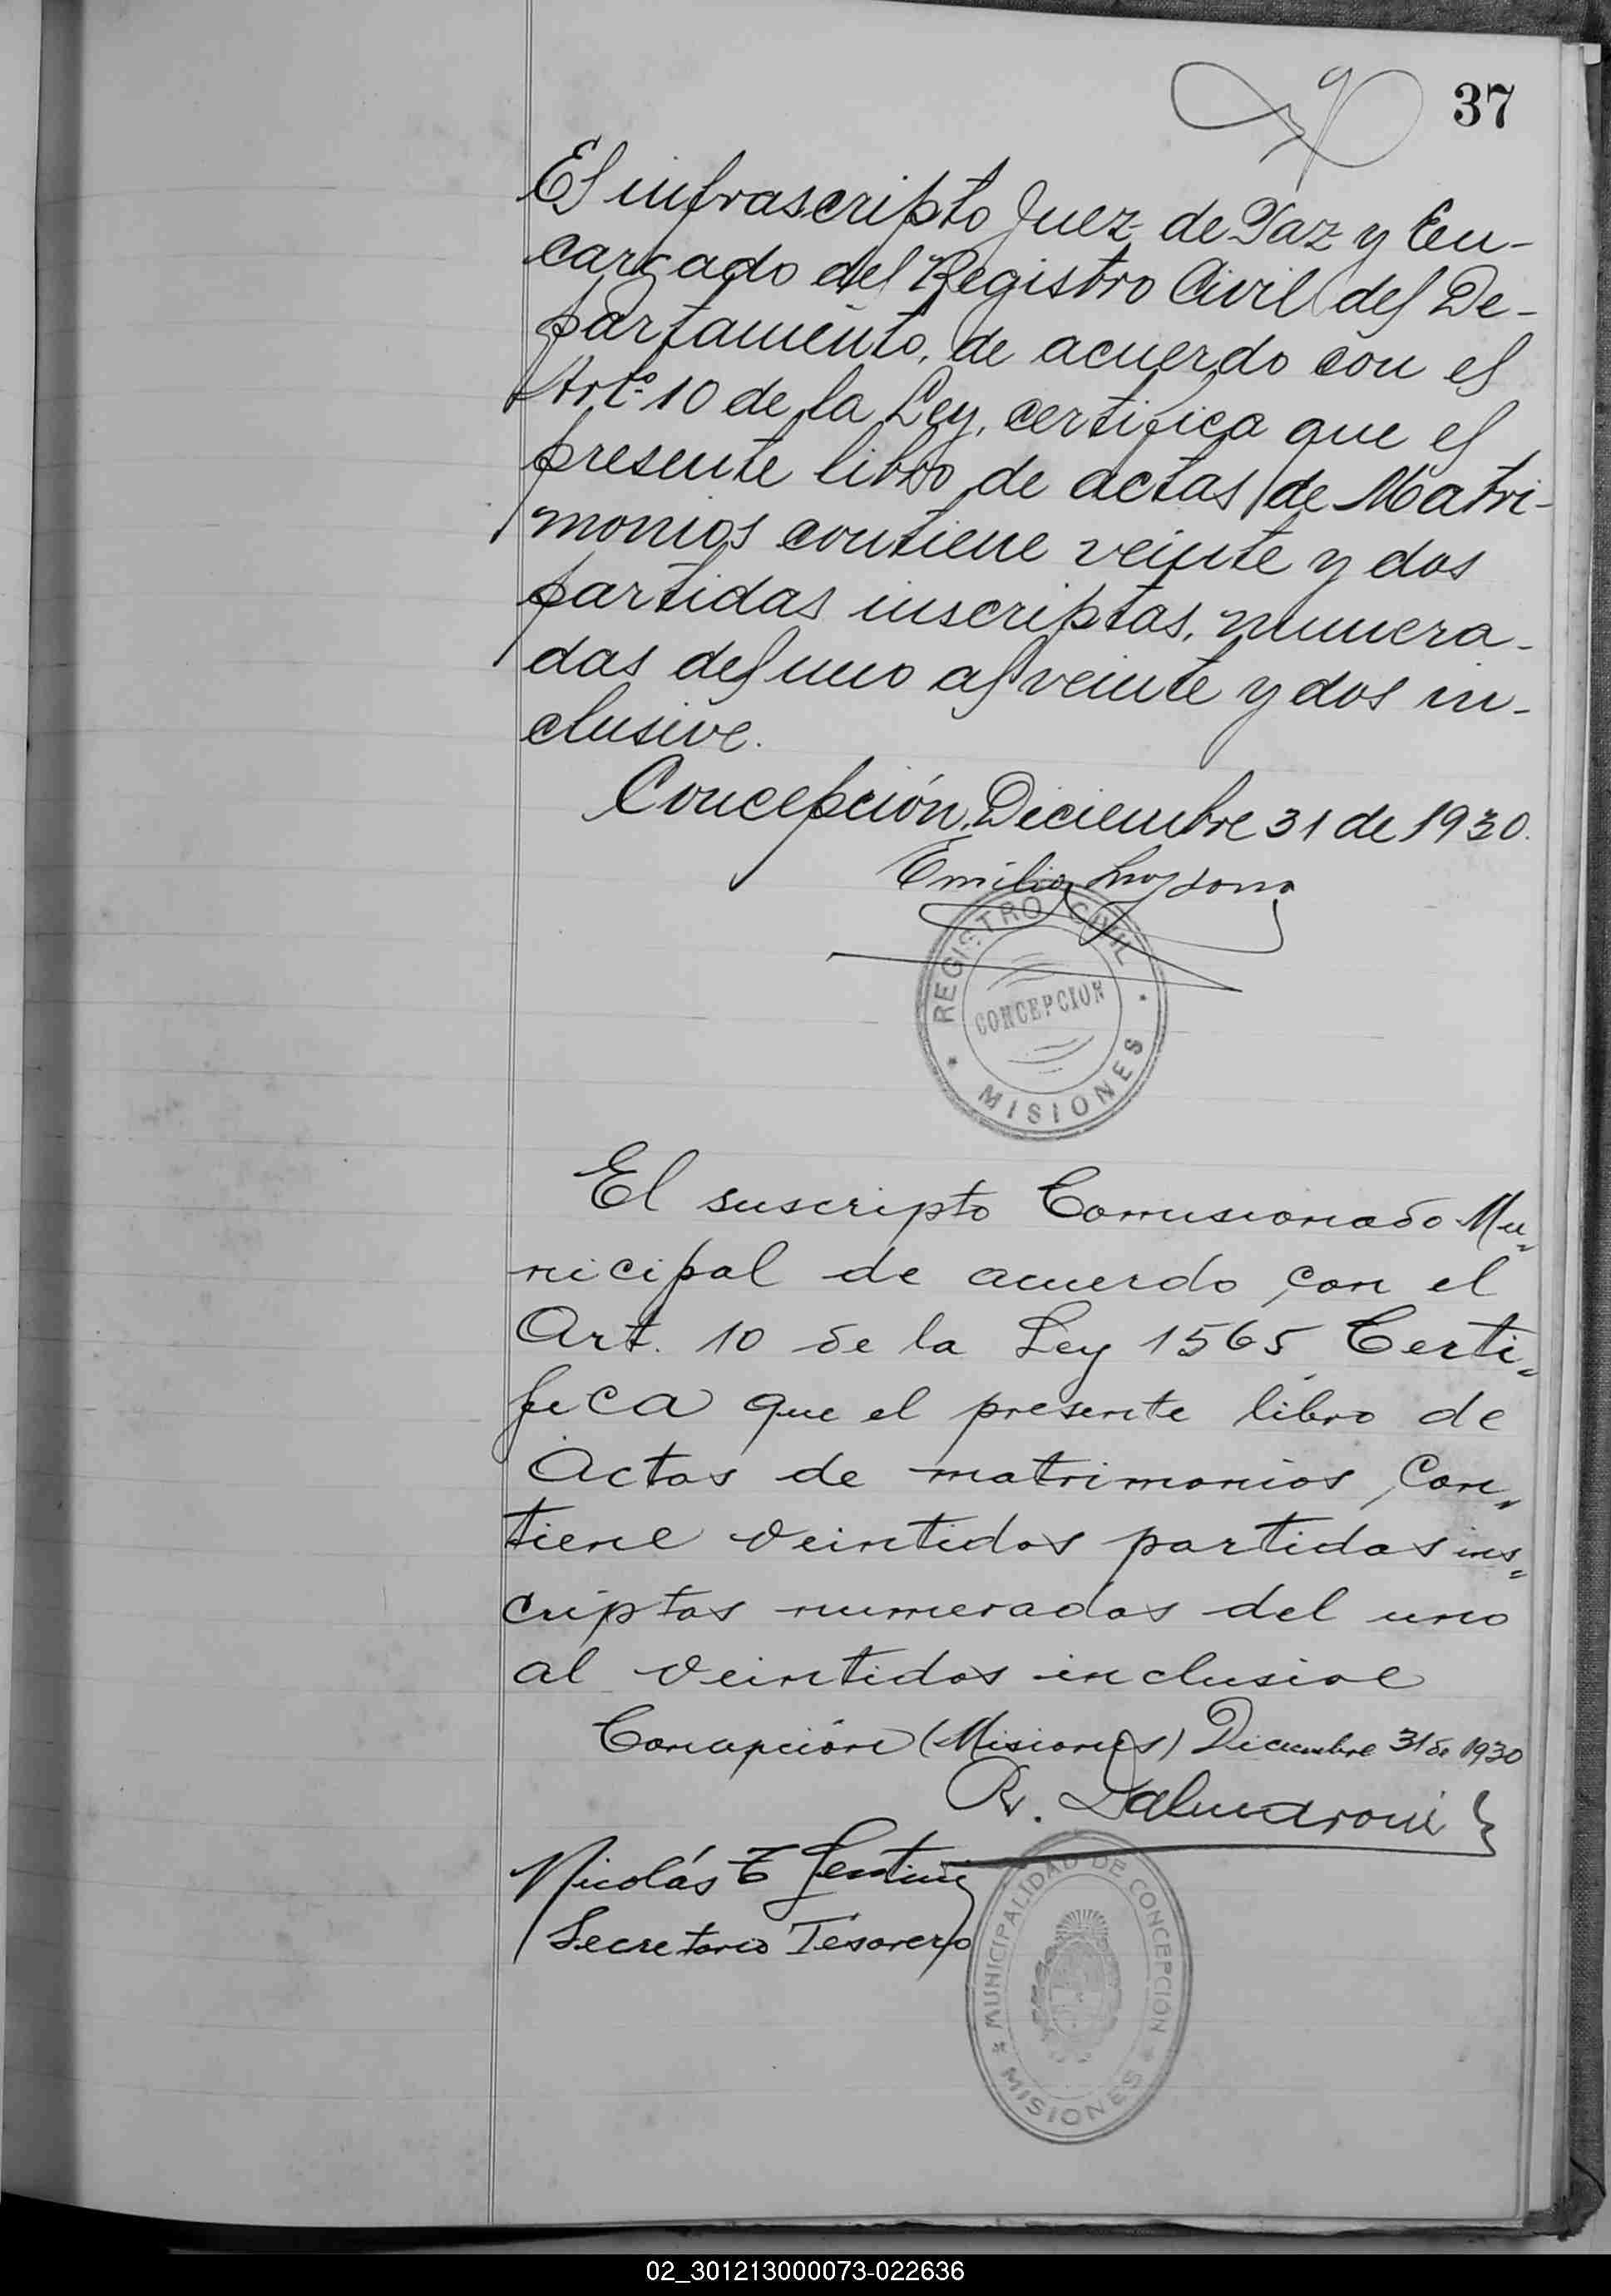 37
El infrascripto Juez de Paz y En-
cargado del Registro Civil del De-
partamento, de acuerdo con el
Artº 10 de la Ley, certifica que el
presente libro de actas de Matri-
monios contiene veinte y dos
partidas inscriptas, numera-
das del uno al veinte y dos in-
clusive.
Concepción, Diciembre 31 de 1930.
Emilio
REGISTRO CIVIL
CONCEPCION
MISIONES
El suscripto Comisionado Mu=
nicipal de acuerdo con el
Art. 10 de la Ley 1565, Certi=
fica que el presente libro de
Actas de matrimonios, Con=
tiene veintidos partidas ins=
criptas numeradas del uno
al veintidos inclusive
Concepción (Misiones) Diciembre 31 de 1930
R. Dalmaroni
Nicolás E
Secretario Tesorero
MUNICIPALIDAD DE CONCEPCIÓN
MISIONES
02_301213000073-022636